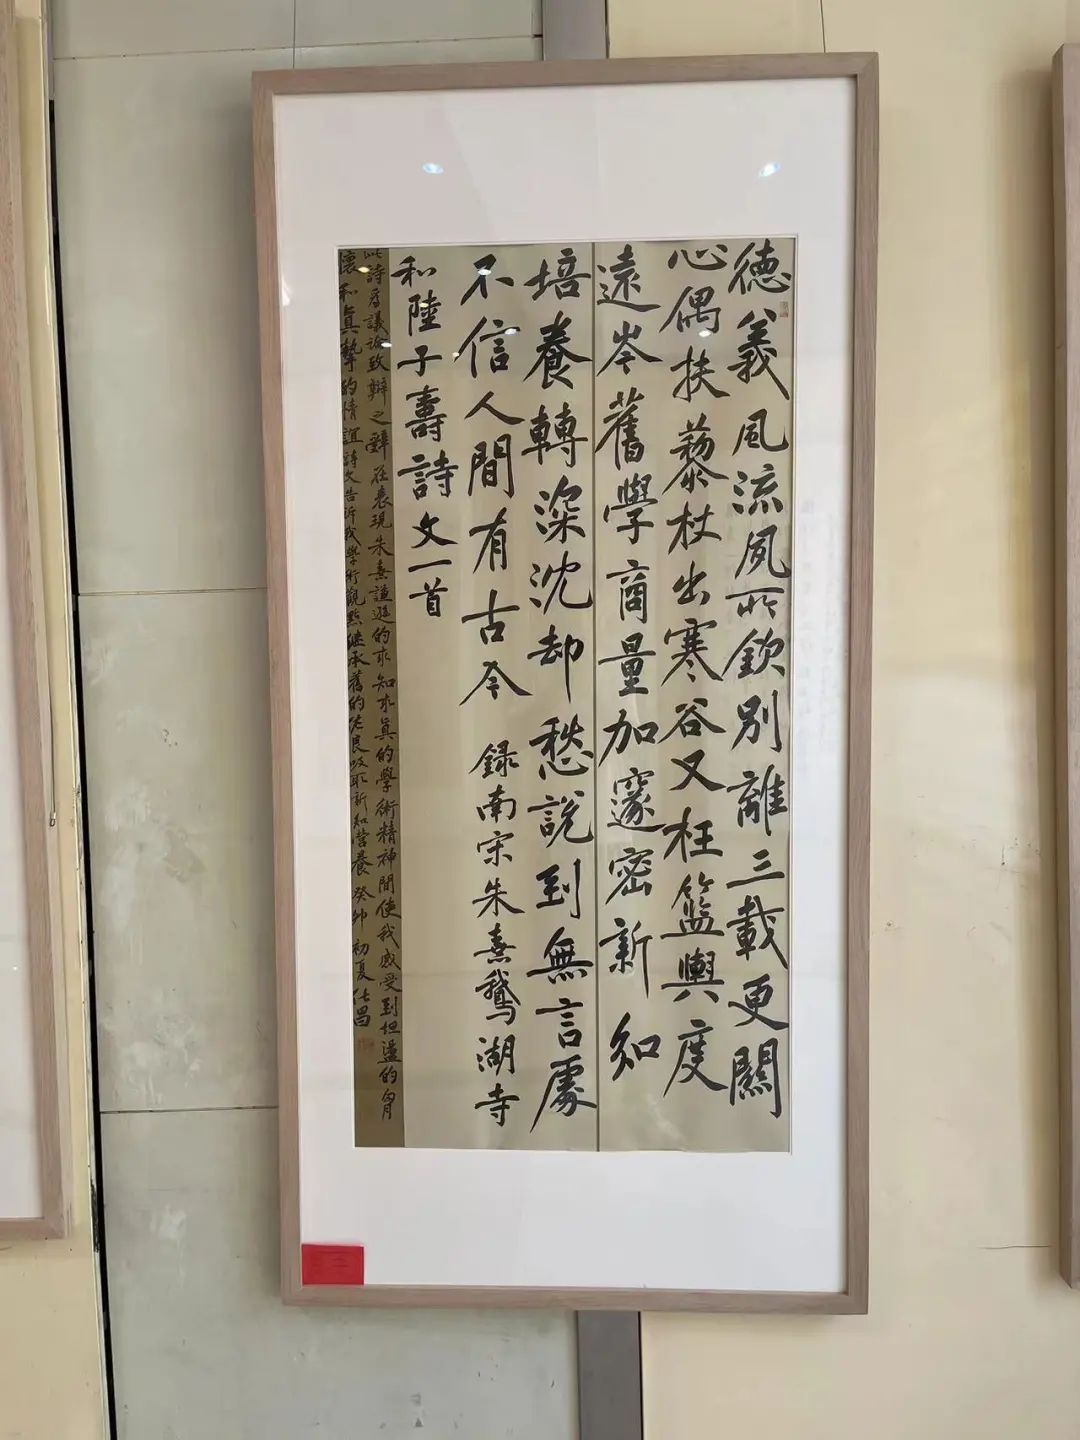 德義風流夙所欽別離三載更關
心偶扶藜杖出寒谷又枉籃輿度
遠岑舊學商量加邃密新知
培養轉深沈却愁說到無言處
不信人間有古今 録南宋朱熹鵝湖寺
和陸子壽詩文一首
此詩爲議論致辯之辭在表現朱熹謙遜的求知求真的學術精神間使我感受到坦盪的胸
懷和真摯的情誼詩文告訴我學術觀點繼承舊的優良吸取新知營養癸卯初夏仕昌